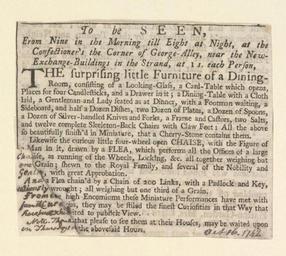 To be SEEN,
From Nine in the Morning till Eight at Night, at the
Confectioner's the Corner of George-Alley, near the New-
Exchange-Buildings in the Strand, at 1 s. each Person,
THE surprising little Furniture of a Dining-
Room, consisting of a Looking-Glass, a Card-Table which opens,
Places for four Candlesticks, and a Drawer in it; a Dining-Table with a Cloth
laid, a Gentleman and Lady seated as at Dinner, with a Footman waiting, a
Sideboard, and half a Dozen Dishes, two Dozen of Plates, a Dozen of Spoons,
a Dozen of Silver-handled Knives and Forks, a Frame and Castors, two Salts,
and twelve complete Skeleton-Back Chairs with Claw Feet: All the above
so beautifully finish'd in Miniature, that a Cherry-Stone contains them.
Likewise the curious little four-wheel open CHAISE, with the Figure of
Man in it, drawn by a FLEA, which performs all the Offices of a large
Chaise, as running of the Wheels, Locking, &c. all together weighing but
one Grain; shewn to the Royal Family, and several of the Nobility and
with great Approbation.
And a Flea chain'd by a Chain of 200 Links, with a Padlock and Key,
curiously wrought; all weighing but one third of a Grain.
From high Encomiums these Miniature Performances have met with
they may be stiled the finest Curiosities in that Way that
to publick View.
that please to see them at their Houses, may be waited upon
on the abovesaid Hours.
Oct 16. 1762